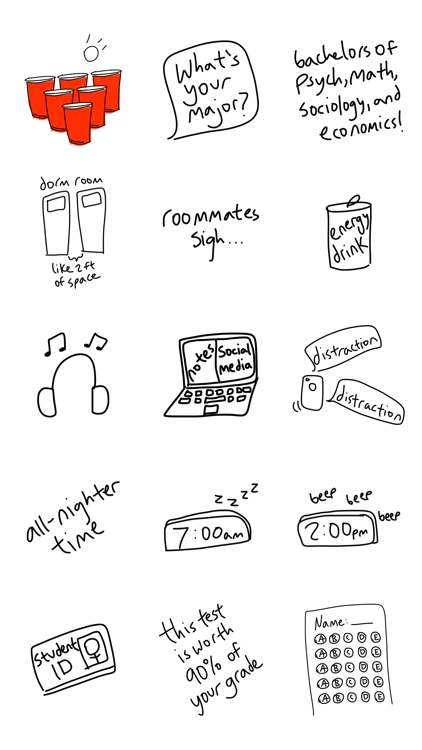 What's
your
major?
bachelors of
Psych, Math,
sociology, and
economics!
dorm room
like 2 ft
of space
roommates
sigh...
energy
drink
notes
Social
media
distraction
distraction
all-nighter
time
z z z z
7:00am
beep beep
beep
2:00pm
Student
ID
this test
is worth
90% of
your grade
Name: ___
A B C D E
A B C D E
A B C D E
A B C D E
A B C D E